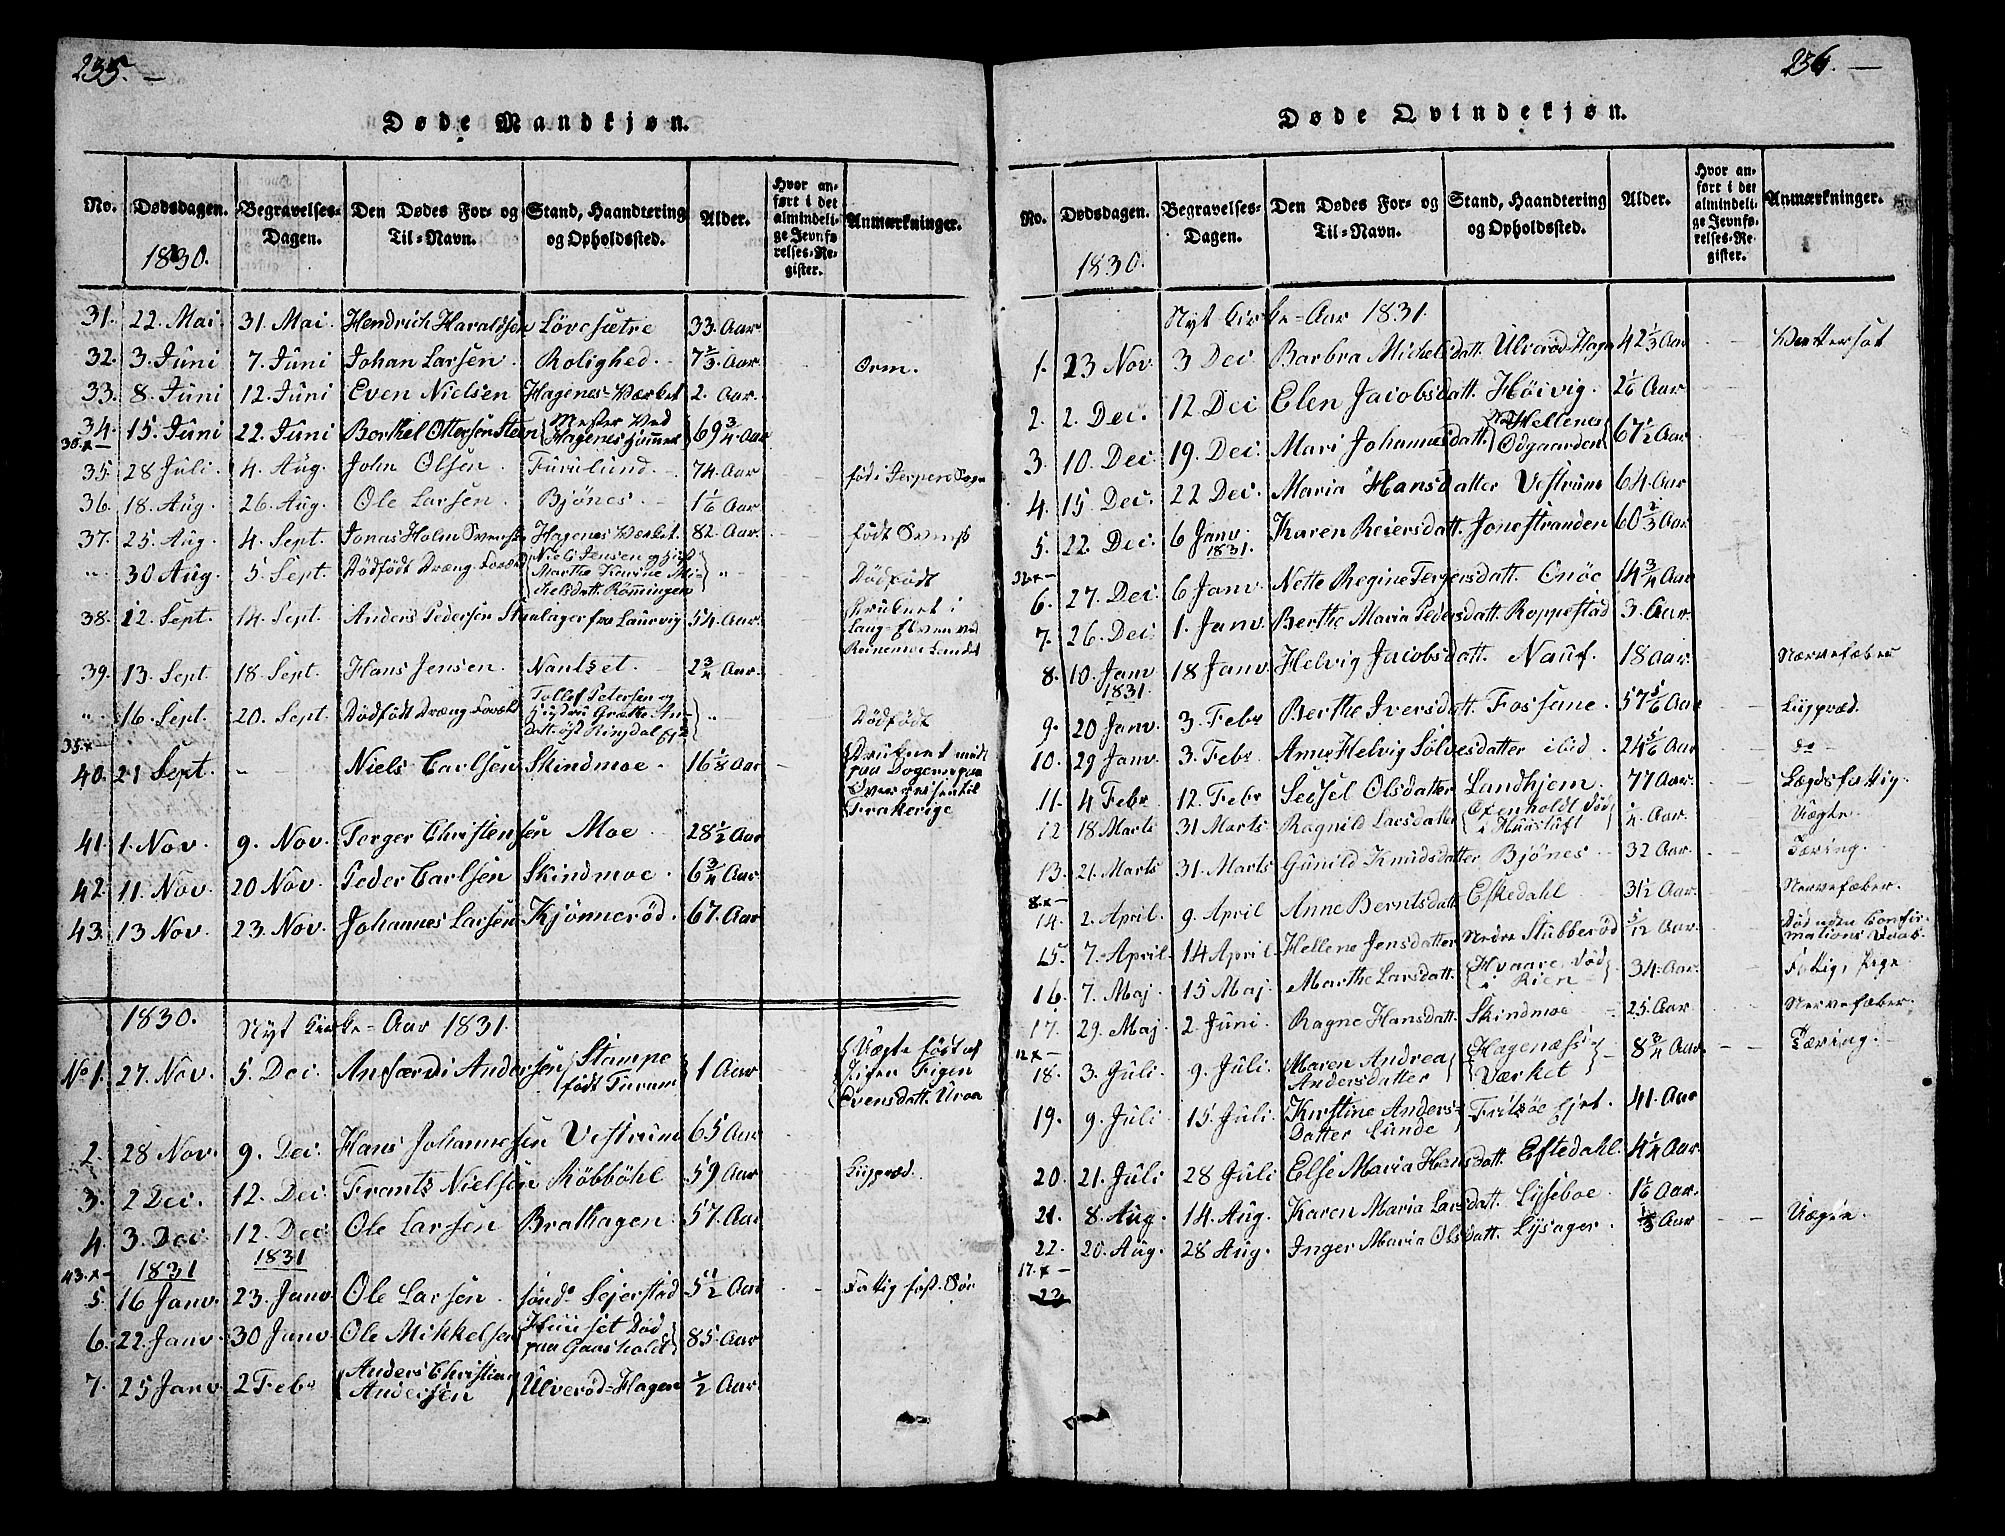 235. —
Døde Mandkjøn.
No. Dødsdagen. Begravelses-Dagen. Den Dødes For- og Til-Navn. Stand, Haandtering og Opholdssted. Alder. Hvor anført i det almindelige Jevnførelses-Register. Anmærkninger.
1830.
31. 22. Mai. 31. Mai. Hendrich Haraldsen Lövesætre 33. Aar.
32. 3. Juni 7. Juni Johan Larsen. Rolighed. 7 2/3. Aar. Orm.
33. 8. Juni 12. Juni Even Nielsen Hagenes-Værket 2. Aar.
34. 15. Juni 22. Juni Berthel Ottersen Steen { Mester Ved Hagenes 69 3/4. Aar
35. 28 Juli. 4. Aug. John Olsen. Furulund. 74. Aar. föd i Gerpen Sogn
36. 18. Aug. 26. Aug. Ole Larsen. Bjönes. 1 1/6 Aar.
37. 25. Aug. 4. Sept. Jonas Holm Hagenes Værket. 82. Aar. födt Svensk
" 30 Aug. 5. Sept. Dödfödt Dræng { Niels Jensen og Marthe Kirstine Mi-kelsdatt. Römmingen } " Dödfödt
38. 12. Sept. 14. Sept. Anders Pedersen fra Laurvig 54. Aar. Druknet i Laug-Elven ved
39. 13. Sept. 18. Sept. Hans Jensen. Nantset. 2 3/4. Aar.
" 16. Sept. 20. Sept. Dödfödt Dræng { Tollef Petersen og } " Dödfödt
40. 21 Sept. Niels Carlsen Skindmoe. 16 1/8 Aar
41. 1. Nov. 9. Nov. Torger Christensen Moe 28 1/2 Aar
42. 11. Nov. 20 Nov. Peder Carlsen Skindmoe. 6 3/4 Aar.
43. 13 Nov. 23. Nov. Johannes Larsen Kjønneröd. 67. Aar
1830. Nyt Kirke-Aar 1831.
No 1. 27. Nov. 5. Dec. Andersen { Stampe födt } 1 Aar
2. 28 Nov. 9. Dec. Hans Johannesen Vestrum 65 Aar
3. 2 Dec. 12. Dec. Frants Nielsen Röbböhl 59 Aar
4. 3. Dec. 12. Dec. Ole Larsen Brathagen. 57. Aar
1831 1831
43.x—
5. 16 Janv. 23. Janv. Ole Larsen. sönd. Sejerstad 5 1/2 Aar
6. 22. Janv. 30 Janv. Ole Mikkelsen { Död paa Gaasholdt } 85. Aar
7. 25 Janv 2 Feb. { Anders Christian Andersen } Ulveröd-Hagen 1/2 Aar.
236. —
Døde Qvindekjøn.
No. Dødsdagen. Begravelses-Dagen. Den Dødes For- og Til-Navn. Stand, Haandtering og Opholdssted. Alder. Hvor anført i det almindelige Jevnførelses-Register. Anmærkninger.
1830.
Nyt Kirke-Aar 1831.
1. 23 Nov. 3 Dec. Barbra Michelsdatt. Ulveröd-Hage 42 1/3 Aar Vattersot
2. 2. Dec. 12 Dec Elen Jacobsdatt. Höivig. 2 1/6 Aar
3. 10. Dec. 19. Dec. Mari Johannesdatt. { Hellenes Odgaarden } 67 1/2 Aar
4. 15 Dec. 22 Dec. Maria Hansdatter Vestrum 64. Aar
5. 22. Dec. 6 Janv. 1831. Karen Reiersdatt. Jonestranden 60 2/3 Aar.
6. 27. Dec. 6 Janv. Nette Regine Tergersdatt. Onöe 14 3/4 Aar
7. 26. Dec. 1. Janv. Berthe Maria Pedersdatt. Roppestad 3. Aar.
8. 10. Janv 1831. 18 Janv. Helvig Jacobsdatt. Nauf. 18 Aar. Nervefeber
9. 20 Janv. 3. Febr Berthe Iversdatt. Fossane. 57 5/6 Aar
10. 29 Janv. 3. Febr Anne Helvig Sölvesdatter ibid. 24 5/6 Aar do
11. 4 Febr 12. Febr Sedsel Olsdatter Landhjem. 77 Aar. Lægdsfattig.
12 18 Marts 31 Marts Ragnild Larsdatter { Oxenholdt död i Huustuft } Aar.
13. 21. Marts 31. Marts Gunild Knudsdatter Bjönes 32 Aar. Tæring.
8.x—
14. 2. April. 9. April Anne Berntsdatt Eskedahl 31 1/2 Aar. Nervefeber.
15. 7. April. 14 April. Hellene Jensdatter Nedre Stubberöd 5/12 Aar. Död uden Confirmations Daab.
16. 7. Maj. 15 Maj. Marthe Larsdatt. { Hvaare, död i Rien } 34. Aar. Fattig, Pige
17. 29. Maj 2. Juni. Ragne Hansdatt. Skindmoe 25. Aar Nervefeber.
12.x—
18. 3. Juli. 9. Juli. Maren Andrea Andersdatter { Hagenæss Værket } 8 3/4 Aar. Tæring.
19. 9. Juli 15. Juli. Kirstine Anders-datter Lunde Fritzöe 41. Aar
20. 21. Juli 28 Juli Else Maria Hansdatt. Eftedahl. 4 1/4 Aar.
21. 8. Aug. 14. Aug. Karen Maria Larsdatt. Lyseboe. 1 1/6 Aar.
22. 20. Aug. 28 Aug. Inger Maria Olsdatt. Lysager. 1/3 Aar
17.x—
23